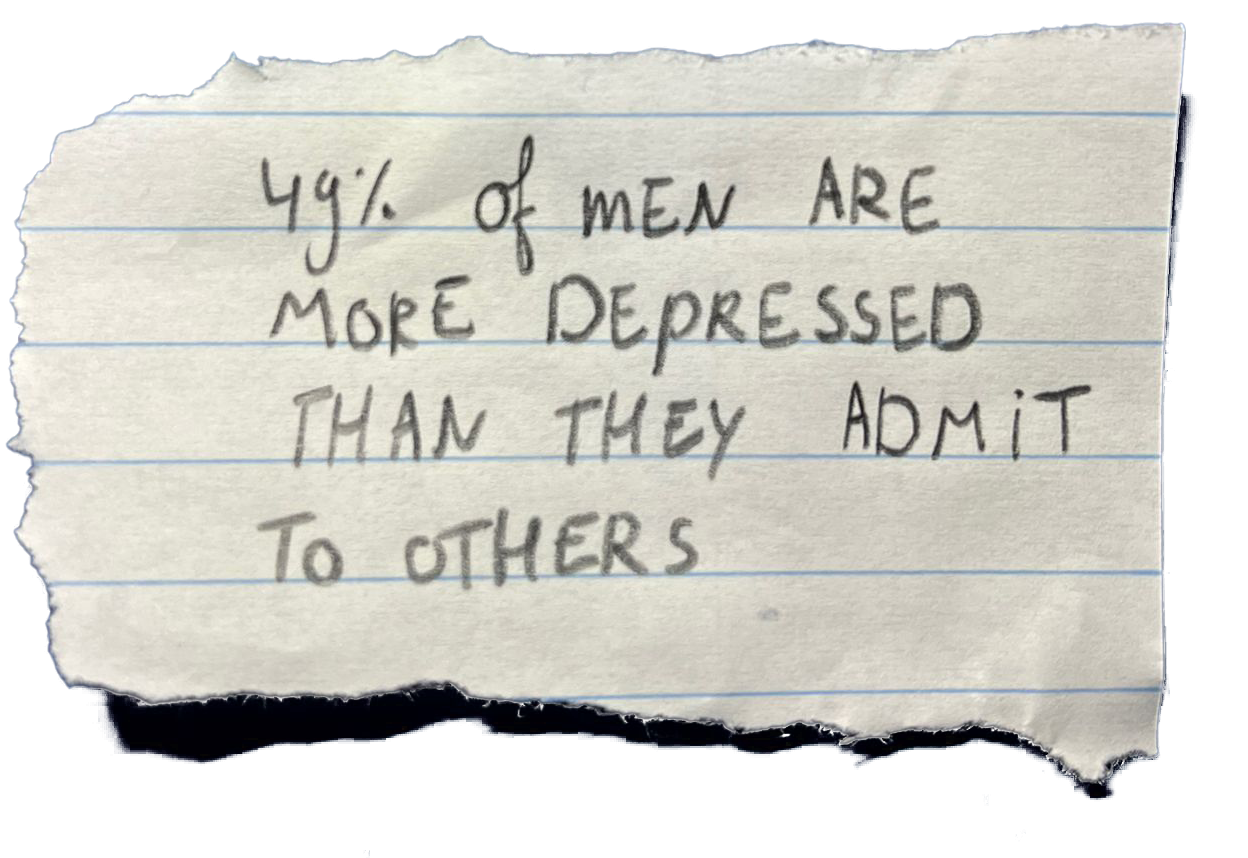 49% of mEN ARE
MORE DEPRESSED
THAN THEY ADMiT
To OTHERS